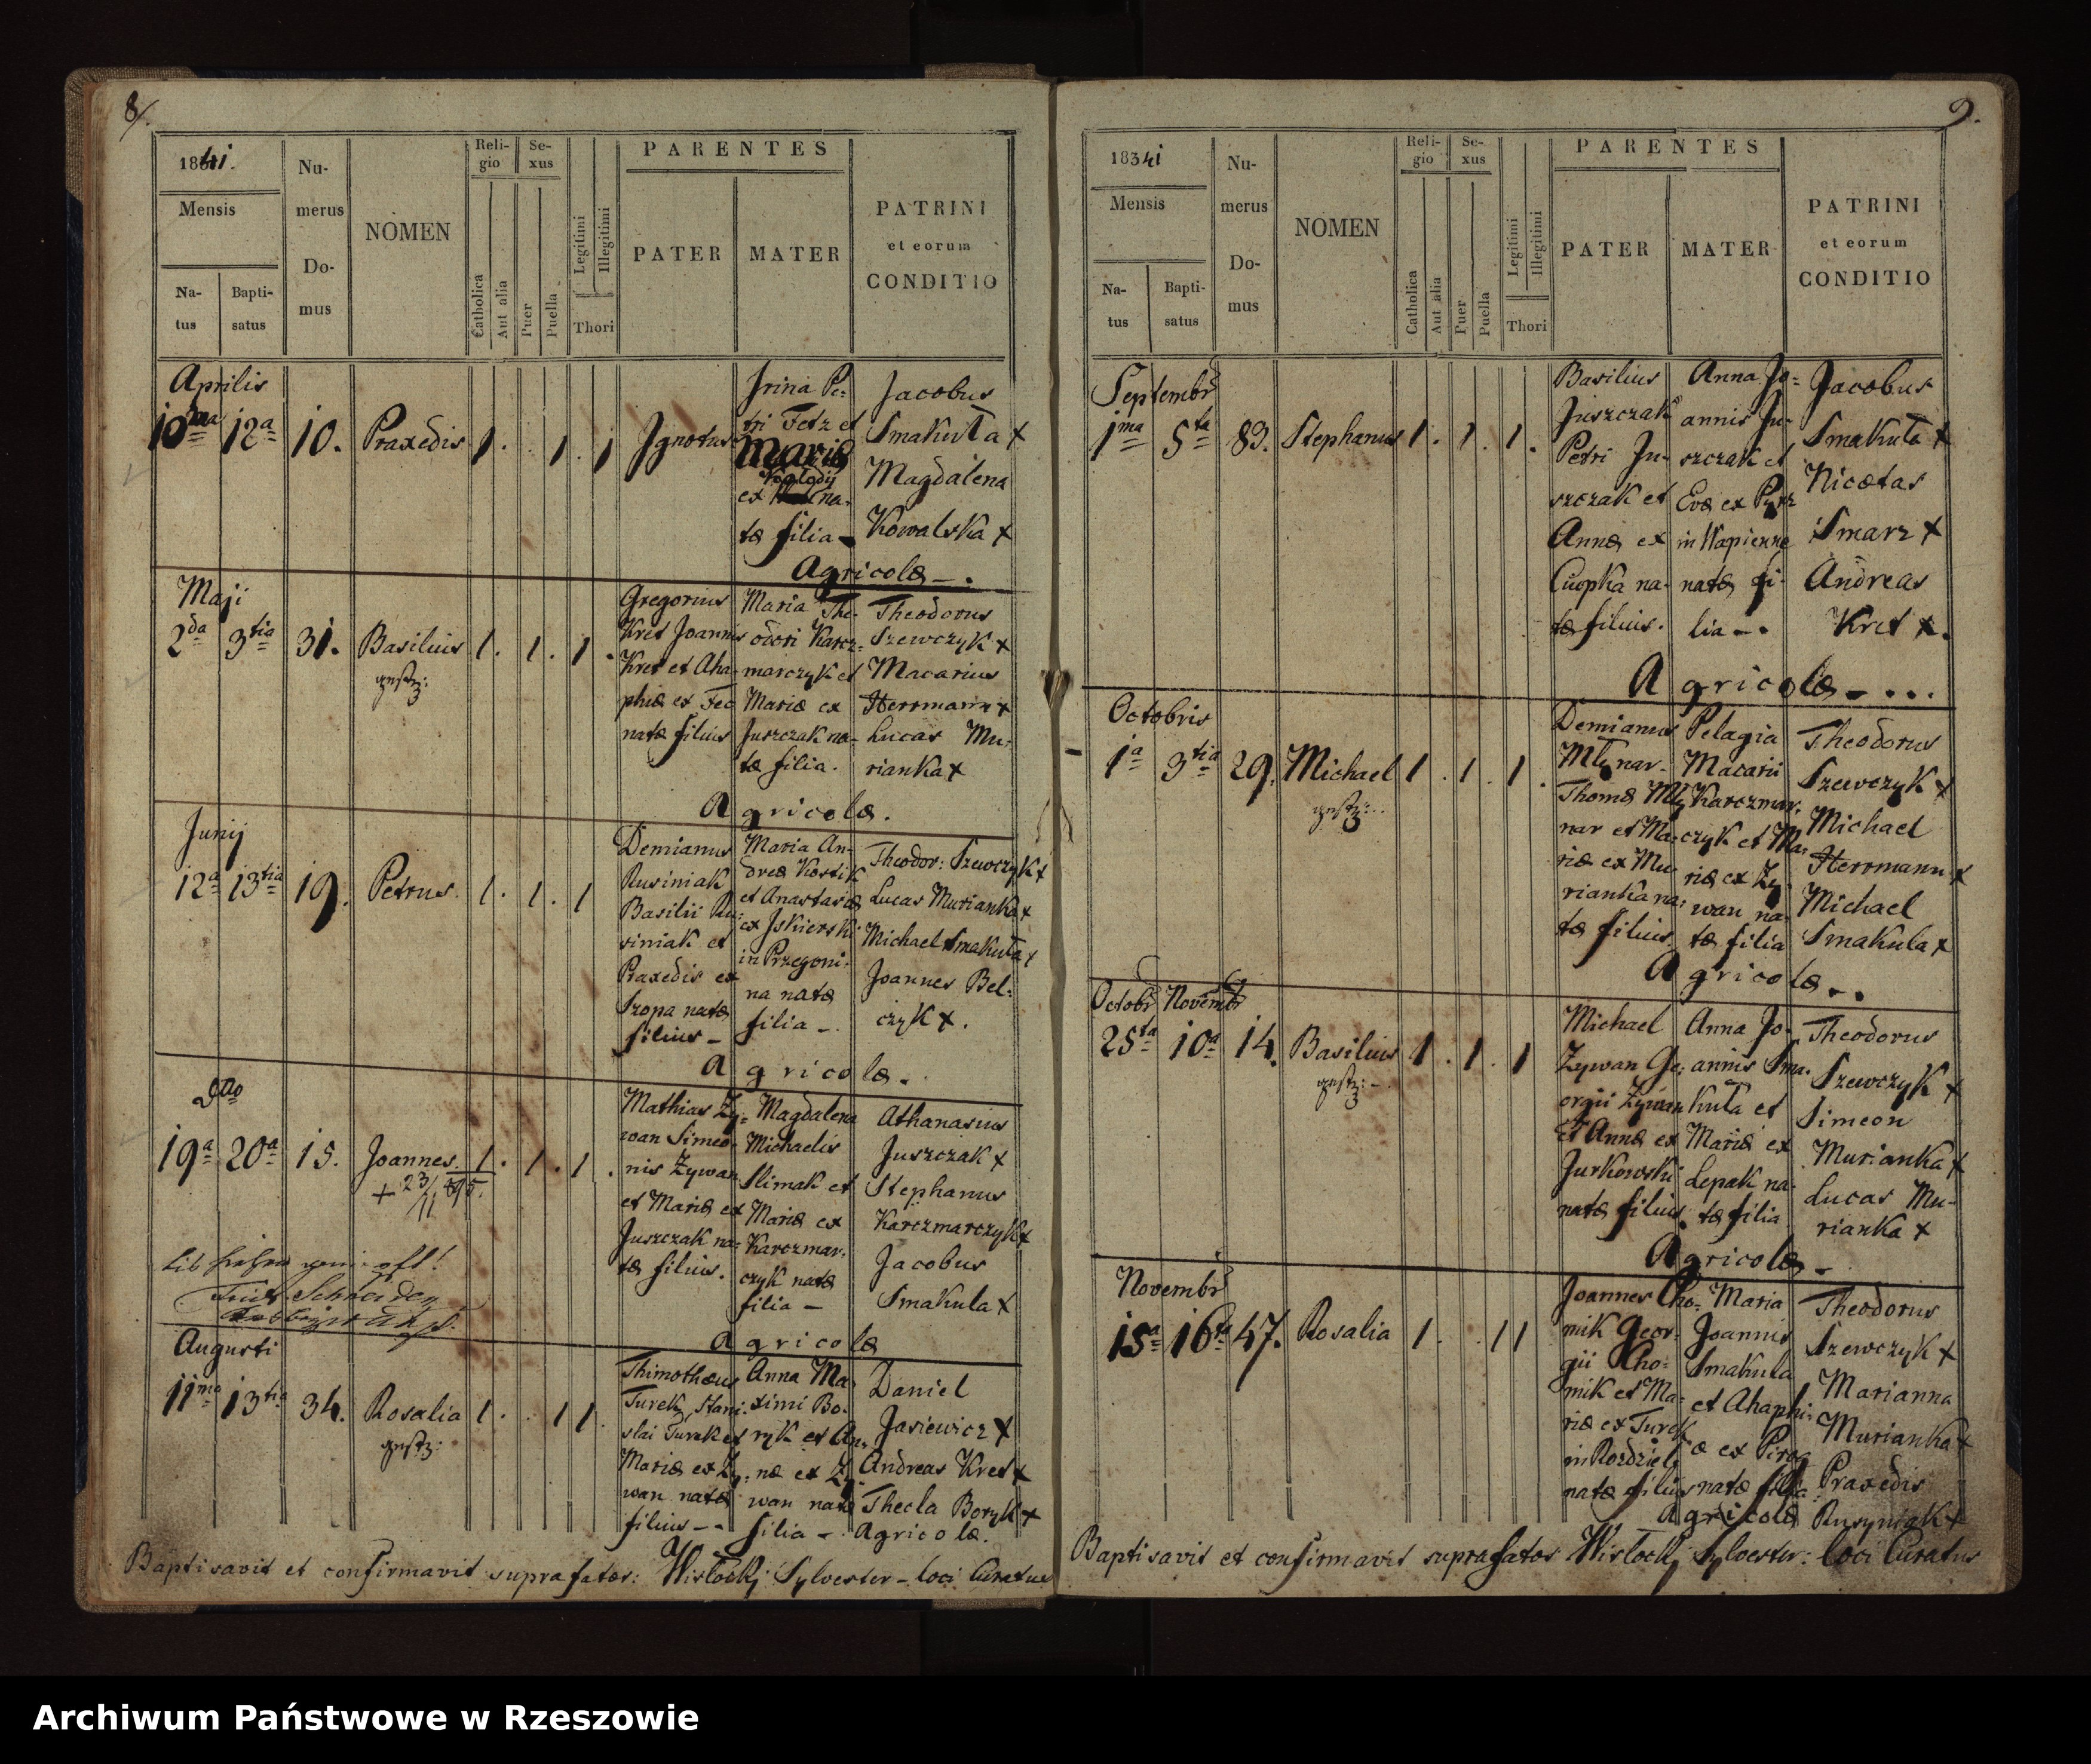 8/.
1841.
Mensis
Na-
tus
Bapti-
satus
Nu-
merus
Do-
mus
NOMEN
Reli-
gio
Catholica
Aut alia
Se-
xus
Puer
Puella
Legitimi
Illegitimi
Thori
PARENTES
PATER
MATER
PATRINI
et eorum
CONDITIO
Aprilis
10ma 12a 10. Praxedis 1. 1. 1
Ignotus
Irina Pe-
tri Fetz et
Mariæ
Kołodÿ
ex na-
tæ filia
Jacobus
Smakuła x
Magdalena
Kowalska x
Agricolæ -.
Maji
2da 3tia 31. Basilius 1. 1. 1.
Gregorius
Kret Joannis
Kret et Aha-
phiæ ex Fec
natæ filius
Maria The-
odori Karcz-
marczyk et
Mariæ ex
Juszczak na-
tæ filia.
Theodorus
Szewczyk x
Macarius
Herrmann x
Lucas Mu-
rianka x
Agricolæ.
Junij
12a 13tia 19. Petrus. 1. 1. 1
Demianus
Rusiniak
Basilii Ru-
siniak et
Praxedis ex
Szopa natæ
filius -
Maria An-
dreæ Kostik
et Anastasiæ
ex Iskierski
in Przegoni-
na natæ
filia -.
Theodor: Szewczyk x
Lucas Murianka x
Michael Smakuła x
Joannes Bel-
czyk x.
Agricolæ.
dtto
19a 20a 15. Joannes. 1. 1. 1.
Mathias Zy-
wan Simeo-
nis Zywan
et Mariæ ex
Juszczak na-
tæ filius.
Magdalena
Michaelis
Slimak et
Mariæ ex
Karczmar-
czyk natæ
filia -
Athanasius
Juszczak x
Stephanus
Karczmarczyk x
Jacobus
Smakula x
Agricolæ
Augusti
11ma 13tia 34. Rosalia 1. 1 1.
Thimotheus
Turek, Stani-
slai Turek et
Mariæ ex Zy-
wan natæ
filius -.
Anna Ma-
ximi Bo-
ryk et An-
næ ex Zy-
wan natæ
filia -.
Daniel
Jasiewicz x
Andreas Kret x
Thecla Boryk x
Agricolæ.
Baptisavit et confirmavit suprafatus: Wisłocki Sylvester - loci Curatus
9.
1841
Mensis
Na-
tus
Bapti-
satus
Nu-
merus
Do-
mus
NOMEN
Reli-
gio
Catholica
Aut alia
Se-
xus
Puer
Puella
Legitimi
Illegitimi
Thori
PARENTES
PATER
MATER
PATRINI
et eorum
CONDITIO
Septembr
1ma 5ta 83. Stephanus 1. 1. 1.
Basilius
Juszczak
Petri Ju-
szczak et
Annæ ex
Cuopka na-
tæ filius.
Anna Jo-
annis Ju-
szczak et
Evæ ex Pyrz
in Wapienne
natæ fi-
lia -.
Jacobus
Smakuła x
Nicetas
Smarz x
Andreas
Kret x.
Agricolæ - ...
Octobris
1a 3tia 29. Michael 1. 1. 1.
Demianus
Młynar-
Thomæ Mły
nar et Ma-
riæ ex Mu
rianka na-
tæ filius.
Pelagia
Macarii
Karczmar-
czyk et Ma-
riæ ex Zy
wan na-
tæ filia
Theodorus
Szewczyk x
Michael
Herrmann x
Michael
Smakula x
Agricolæ..
Octobr Novembr
25ta 10a 14. Basilius 1. 1. 1
Michael
Zywan Ge-
orgii Zywan
et Annæ ex
Jurkowski
natæ filius.
Anna Jo-
annis Sma-
kuła et
Mariæ ex
Lepak na-
tæ filia
Theodorus
Szewczyk x
Simeon
Murianka x
Lucas Mu-
rianka x
Agricolæ -
Novembr
15a 16ta 47. Rosalia 1. 1 1
Joannes Cho-
mik Geor-
gii Cho-
mik et Ma-
riæ ex Turek
in Rozdziele
natæ filius
Maria
Joannis
Smakula
et Ahaphi-
æ ex Pirog
natæ filia
Theodorus
Szewczyk x
Marianna
Murianka x
Praxedis
Rusyniak x
Agricolæ
Baptisavit et confirmavit suprafatus Wisłocki Sylvester: loci Curatus
Archiwum Państwowe w Rzeszowie